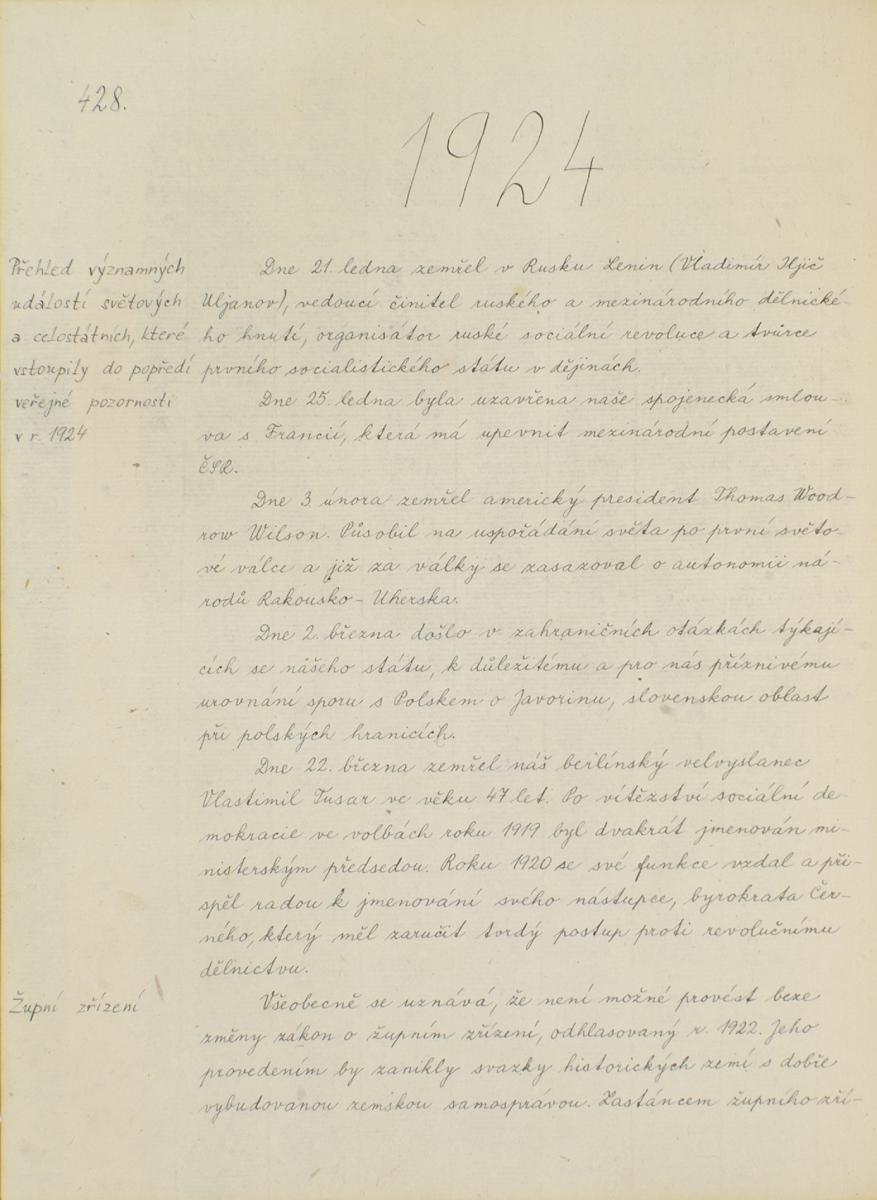 428.
1924
Přehled významných
událostí světových
a celostátních, které
vstoupily do popředí
veřejné pozornosti
v r. 1924
Dne 21. ledna zemřel v Rusku Lenin (Vladimír Iljič
Uljanov), vedoucí činitel ruského a mezinárodního dělnické-
ho hnutí, organisátor ruské sociální revoluce a tvůrce
prvního socialistického státu v dějinách.
Dne 25. ledna byla uzavřena naše spojenecká smlou-
va s Francií, která má upevnit mezinárodní postavení
ČSR.
Dne 3. února zemřel americký president Thomas Wood-
row Wilson. Působil na uspořádání světa po první světo-
vé válce a již za války se zasazoval o autonomii ná-
rodů Rakousko-Uherska.
Dne 2. března došlo v zahraničních otázkách týkají-
cích se nášeho státu, k důležitému a pro nás příznivému
urovnání sporu s Polskem o Javorinu, slovenskou oblast
při polských hranicích.
Dne 22. března zemřel náš berlínský velvyslanec
Vlastimil Tusar ve věku 47 let. Po vítězství sociální de-
mokracie ve volbách roku 1919 byl dvakrát jmenován mi-
nisterským předsedou. Roku 1920 se své funkce vzdal a při-
spěl radou k jmenování svého nástupce, byrokrata Čer-
ného, který měl zaručit tvrdý postup proti revolučnímu
dělnictvu.
Župní zřízení
Všeobecně se uznává, že není možné provést beze
změny zákon o župním zřízení, odhlasovaný r. 1922. Jeho
provedením by zanikly svazky historických zemí s dobře
vybudovanou zemskou samosprávou. Zastáncem župního zří-